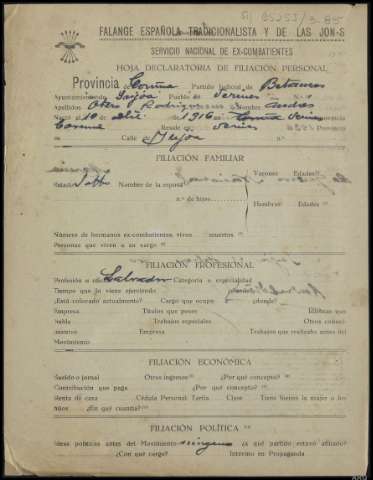 FALANGE ESPAÑOLA TRADICIONALISTA Y DE LAS JON-S
SERVICIO NACIONAL DE EX-COMBATIENTES
HOJA DECLARATORIA DE FILIACIÓN PERSONAL
Provincia de Coruña Partido Judicial de Betanzos
Ayuntamiento de Irijoa Pueblo de Verines
Apellidos Otero Rodríguez Nombre Andrés
Nació el 10 de 1916 en Provincia
Coruña Reside en Verines
Calle de Irijoa
FILIACIÓN FAMILIAR
Varones Edades
Estado Solto Nombre de la esposa
n.º de hijos
Hembras Edades
Número de hermanos ex-combatientes vivos muertos
Personas que viven a su cargo
FILIACIÓN PROFESIONAL
Profesión u oficio Labrador Categoría o especialidad
Tiempo que lo viene ejerciendo
¿Está colocado actualmente? Cargo que ocupa ¿dónde?
Empresa Títulos que posee Idiomas que
habla Trabajos especiales Otros conoci-
mientos Empresa Trabajos que realizaba antes del
Movimiento
FILIACIÓN ECONÓMICA
Sueldo o jornal Otros ingresos ¿Por qué concepto?
Contribución que paga ¿Por qué concepto?
Renta de casa Cédula Personal Tarifa Clase Tiene bienes la mujer o los
niños ¿En qué cuantía?
FILIACIÓN POLÍTICA
Ideas políticas antes del Movimiento ninguna ¿A qué partido estuvo afiliado?
¿Con qué cargo? Intervino en Propaganda